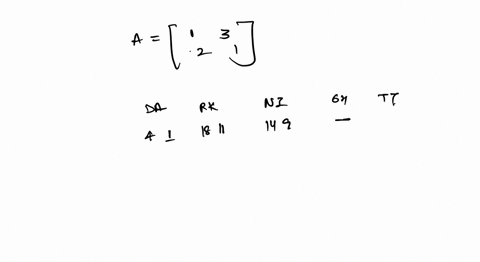 A = [ 1 3
2 1 ]
DA RK NI GH TT
4 1 18 11 14 9 —